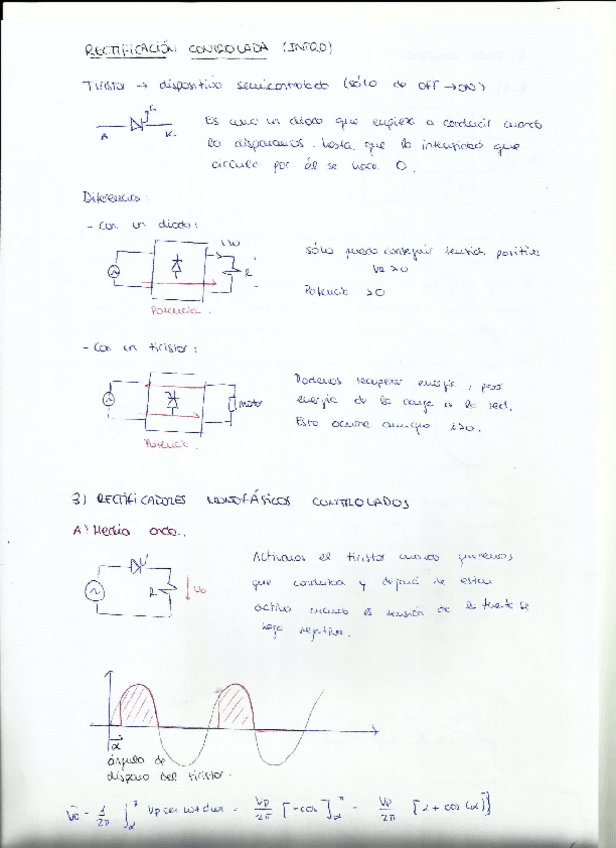 RECTIFICACIÓN CONTROLADA (INTRO)
Tiristor → dispositivo semicontrolado (sólo de OFF → ON)
G
A K
Es como un diodo que empieza a conducir cuando
lo disparamos hasta que la intensidad que
circula por él se hace 0.
Diferencias:
- Con un diodo:
i>0
R
Potencia.
sólo puedo conseguir tensión positiva
Potencia >0
- Con un tiristor:
motor
Potencia.
Podemos recuperar energía, pasar
energía de la carga a la red.
Esto ocurre aunque i>0.
3) RECTIFICADORES MONOFÁSICOS CONTROLADOS
A) Media onda.
R
Vo
Activamos el tiristor cuando queremos
que conduzca y dejará de estar
activo cuando la tensión de la fuente se
haga negativa.
α
ángulo de
disparo del tiristor.
Vo = 1/2π ∫_α^π Vp sen wt dwt = Vp/2π [-cos]_α^π = Vp/2π [1 + cos(α)]